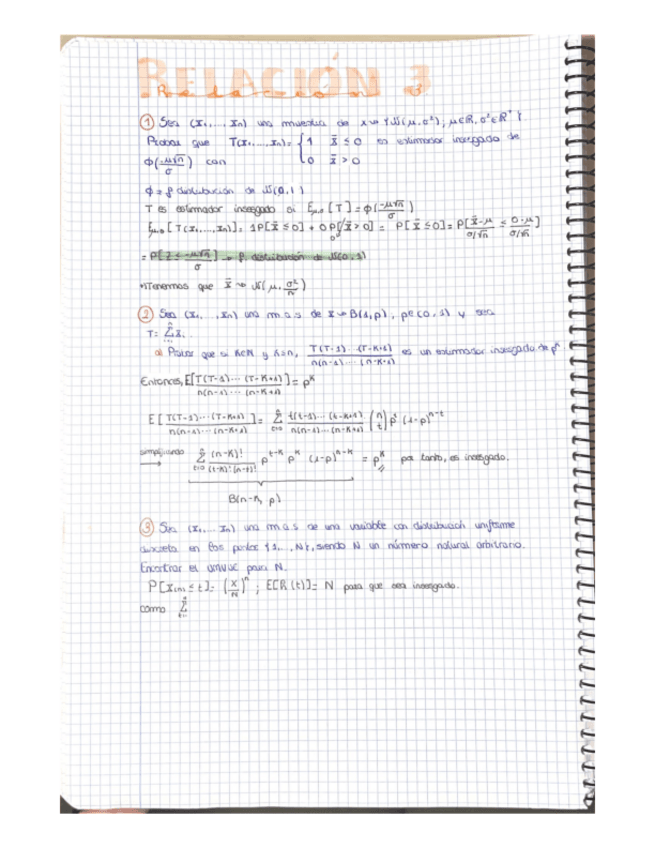 RELACIÓN 3
Relación 3
① Sea (X₁,..., Xn) una muestra de X ⇝ {N(μ, σ²), μ∈ℝ, σ²∈ℝ⁺}
Probar que T(X₁,...,Xn) = { 1 x̄ ≤ 0 es estimador insesgado de
0 x̄ > 0
Φ(-μ√n/σ) con
Φ = f distribución de N(0,1)
T es estimador insesgado si E[T] = Φ(-μ√n/σ)
E[T(X₁,...,Xn)] = 1P[x̄ ≤ 0] + 0P[x̄ > 0] = P[x̄ ≤ 0] = P[x̄-μ/σ/√n ≤ 0-μ/σ/√n]
= P[Z ≤ -μ√n/σ] → f. distribución de N(0,1)
*Tenemos que x̄ ⇝ N(μ, σ²/n)
② Sea (X₁, ..., Xn) una m.a.s de X ⇝ B(1,p), p∈(0,1) y sea
T = Σ Xᵢ.
a) Probar que si k∈ℕ y k≤n, T(T-1)...(T-k+1) / n(n-1)...(n-k+1) es un estimador insesgado de pᵏ
Entonces, E[T(T-1)...(T-k+1) / n(n-1)...(n-k+1)] = pᵏ
E[T(T-1)...(T-k+1) / n(n-1)...(n-k+1)] = Σ t(t-1)...(t-k+1) / n(n-1)...(n-k+1) (n t) pᵗ (1-p)ⁿ⁻ᵗ
simplificando → Σ (n-k)! / (t-k)!(n-t)! pᵗ⁻ᵏ pᵏ (1-p)ⁿ⁻ᵏ = pᵏ por tanto, es insesgado.
B(n-k, p)
③ Sea (X₁,... Xn) una m.a.s de una variable con distribución uniforme
discreta en los puntos {1,..., N}, siendo N un número natural arbitrario.
Encontrar el UMVUE para N.
P[X(n) ≤ t] = (x/N)ⁿ ; E[h(t)] = N para que sea insesgado.
como Σ